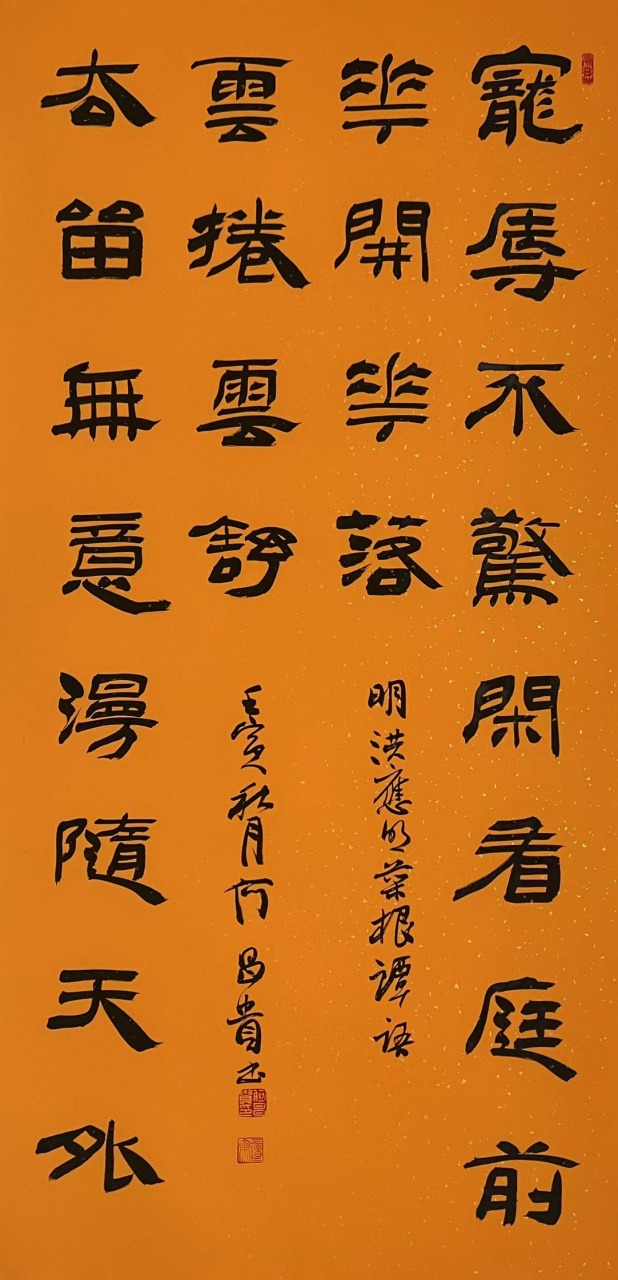 寵辱不驚閑看庭前
華開華落
去留無意漫隨天外
雲捲雲舒
明洪應明菜根譚語
壬寅秋月何昌貴書